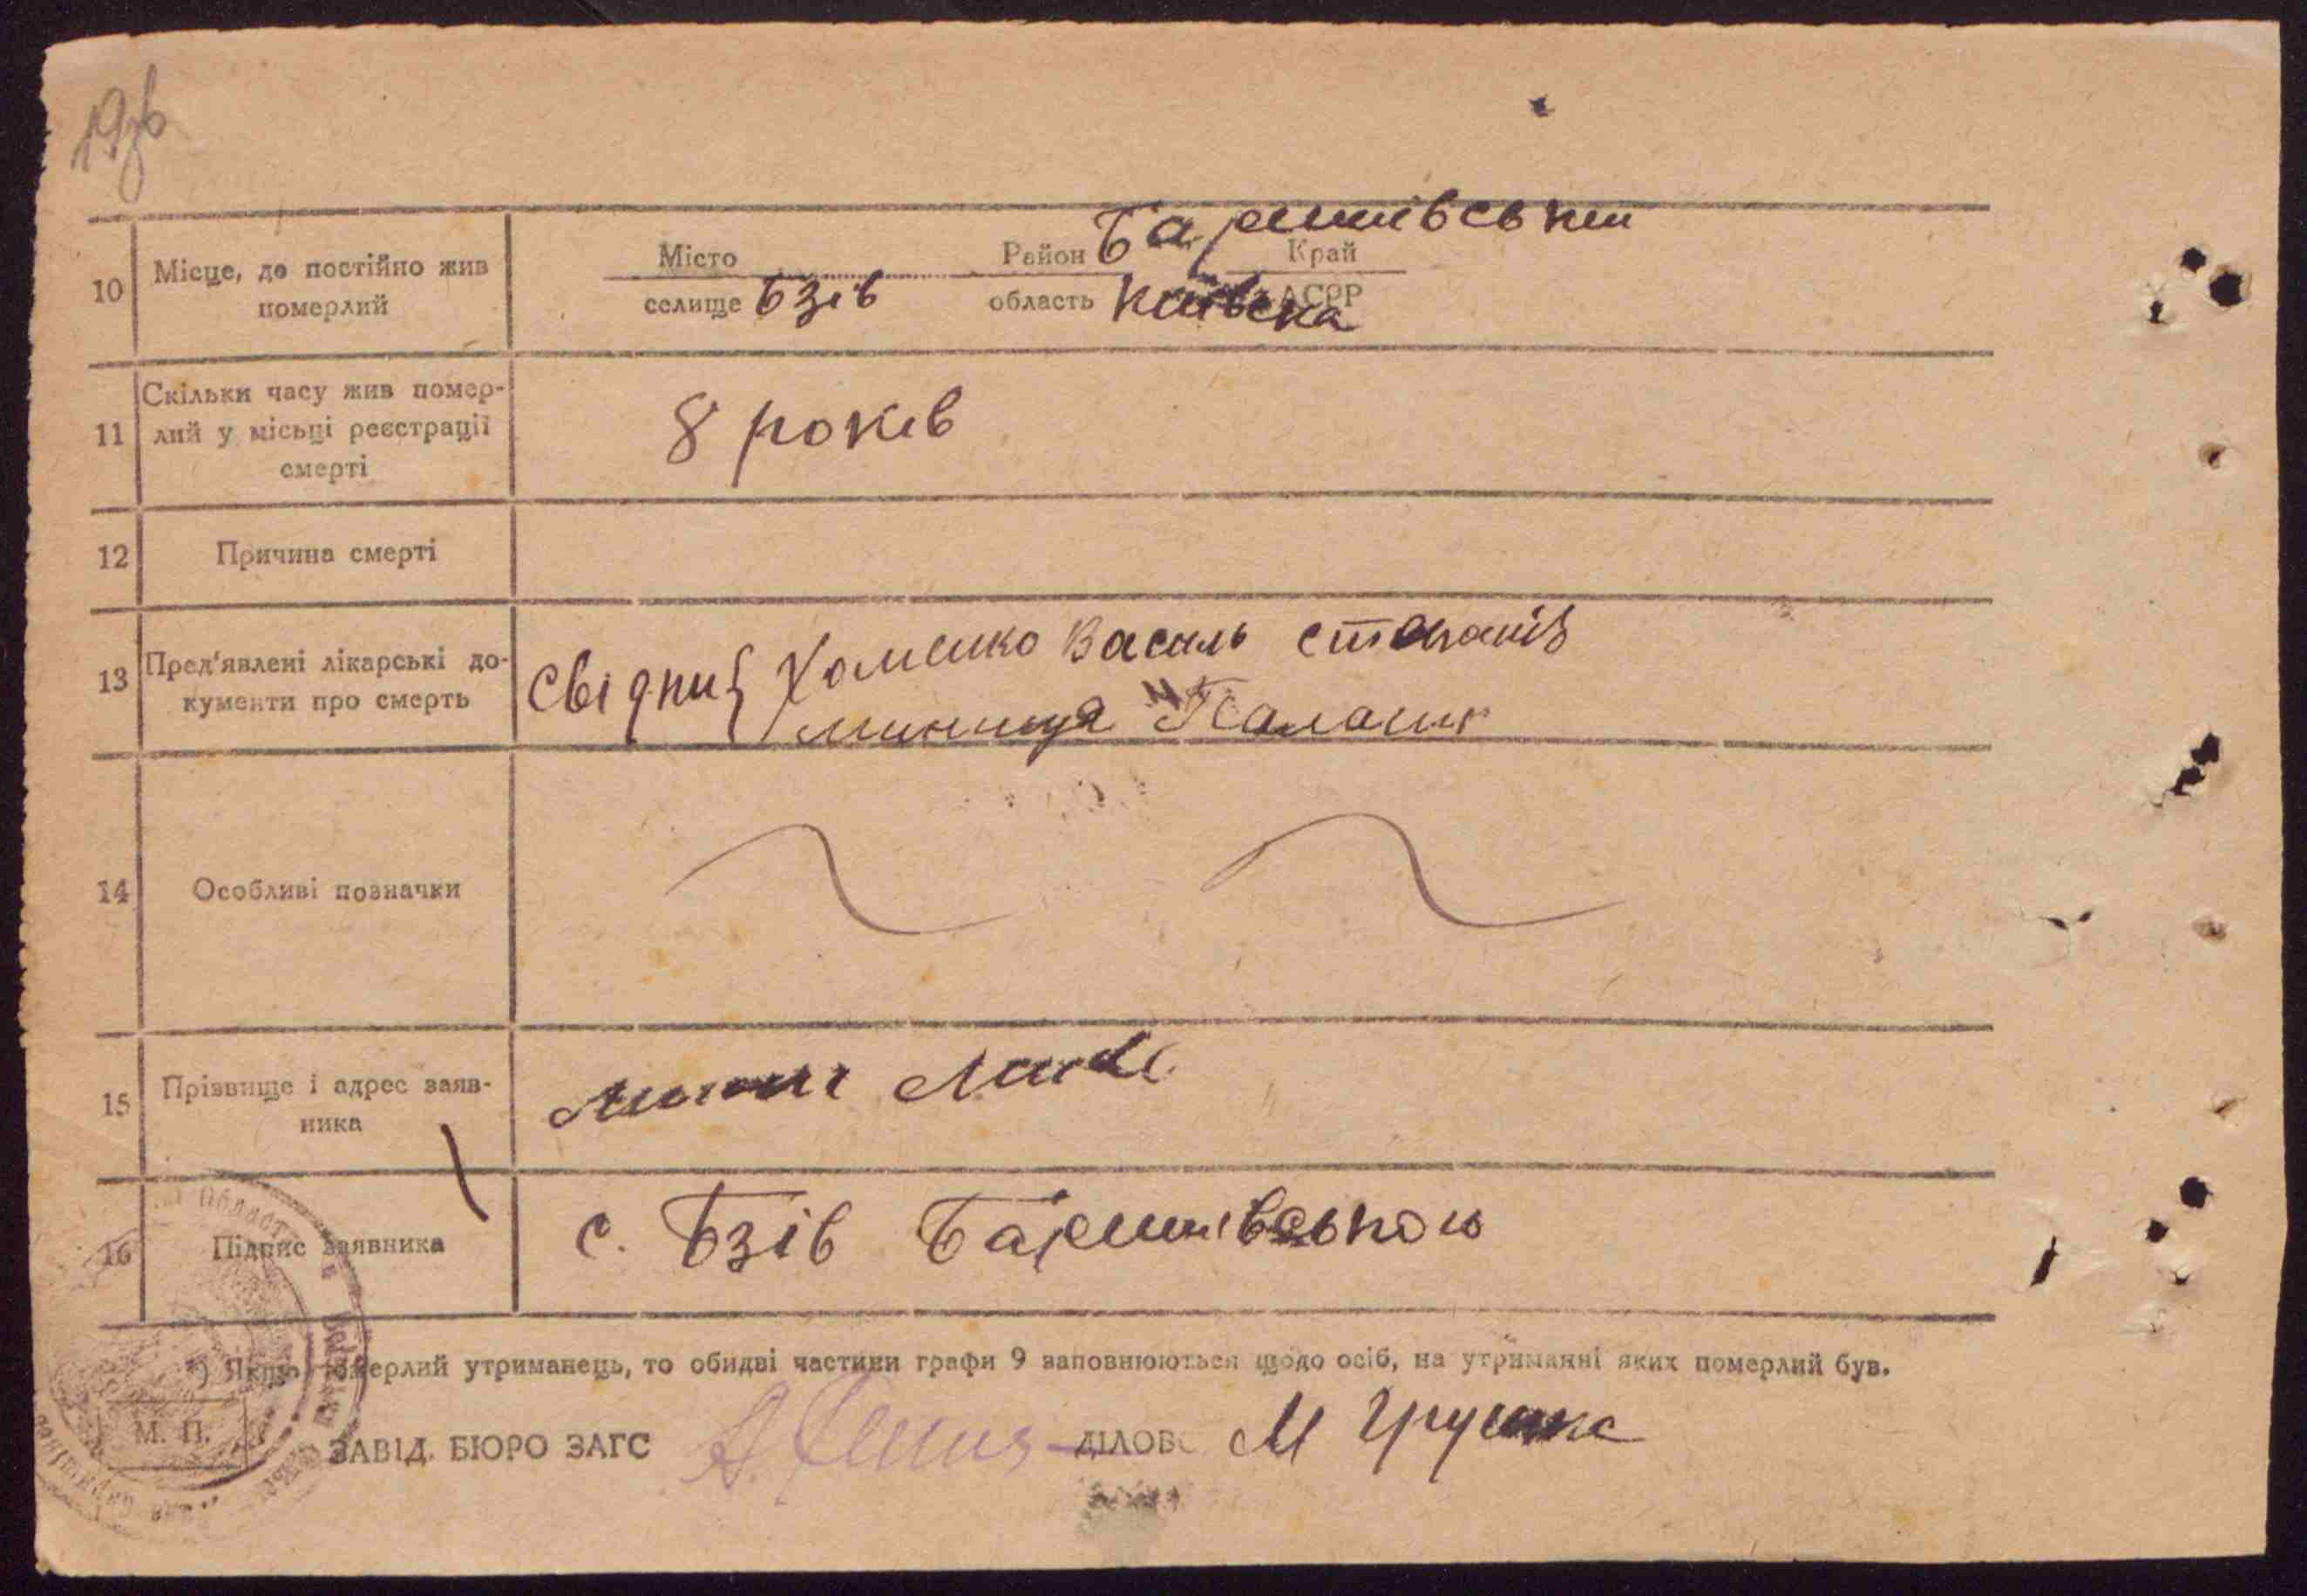 10 Місце, де постійно жив померлий
Місто
селище Бзів
Район Баришівський
область Київська
Край
АСРР
11 Скільки часу жив помер-
лий у місьці реєстрації
смерті
8 років
12 Причина смерті
13 Пред'явлені лікарські до-
кументи про смерть
Свідки { Хоменко Василь
14 Особливі позначки
15 Прізвище і адрес заяв-
ника
16 Підпис заявника
с. Бзів Баришівського
*) Якщо померлий утриманець, то обидві частини графи 9 заповнюються щодо осіб, на утриманні яких померлий був.
М. П.
ЗАВІД. БЮРО ЗАГС
ДІЛОВ
М